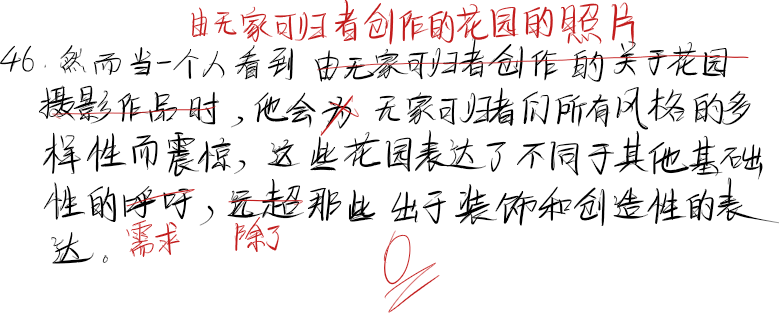 由无家可归者创作的花园的照片
46. 然而当一个人看到 由无家可归者创作的关于花园
摄影作品时，他会为 无家可归者们所有风格的多
样性而震惊，这些花园表达了不同于其他基础
性的呼吁，远超那些出于装饰和创造性的表
达。需求 除了
0